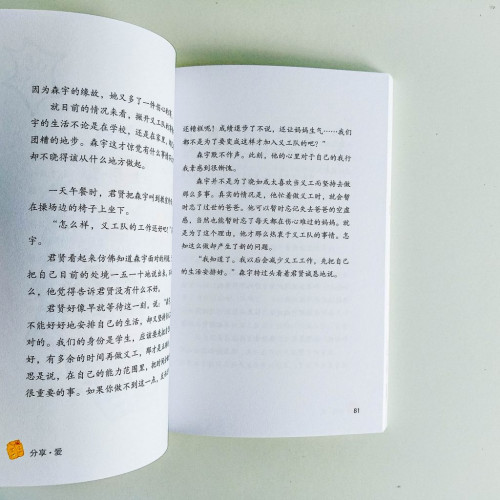 因为森宇的缘故，她又多了一件伤心的
就目前的情况来看，撇开义工队的
宇的生活不论是在学校，还是在家里，
团糟的地步。森宇这才惊觉有什么事情
却不晓得该从什么地方做起。
一天午餐时，君贤把森宇叫到
在操场边的椅子上坐下。
“怎么样，义工队的工作是好吧？”
宇。
君贤看起来仿佛知道森宇面对的
把自己目前的处境一五一十地说出来，
么，他觉得告诉君贤没有什么不好。
君贤好像早就等待这一刻，说：
不能好好地安排自己的生活，却又坚持
对的。我们的身份是学生，应该要先把
好，有多余的时间再做义工，那才是
思是说，在自己的能力范围里，把时间
很重要的事。如果你做不到这一点，
分享·爱
还糟糕呢！成绩退步了不说，还让妈妈生气……我们
都不是为了要变成这样才加入义工队的吧？”
森宇默不作声。此刻，他的心里对于自己的我行
我素感到很惭愧。
森宇并不是为了晓如或太喜欢当义工而坚持去做
那么多事。真实的情况是，他忙着做义工时，就会
暂时忘了过世的爸爸。他可以暂时忘记失去爸爸的空虚
感，自然也能暂时忘了每天都在伤心难过的妈妈。就
是为了这个理由，他才那么热衷于义工队的事情。怎
知这么做却产生了新的问题。
“我知道了。我以后会减少义工工作，先把自己
的生活安排好。”森宇转过头看着君贤诚恳地说。
81